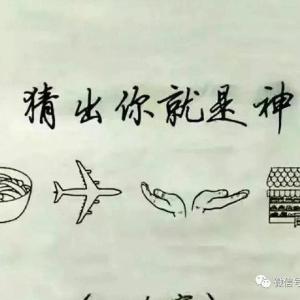 猜出你就是神
微信号